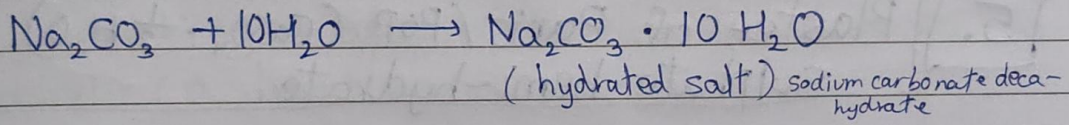 Na₂CO₃ + 10H₂O ⟶ Na₂CO₃ · 10 H₂O
(hydrated salt) sodium carbonate deca-
hydrate